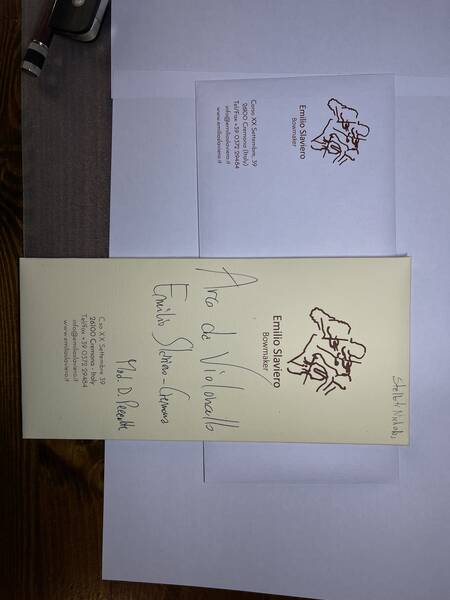 Emilio Slaviero
Bowmaker
Corso XX Settembre, 39
26100 Cremona (Italy)
Tel/Fax +39 0372 29464
info@emilioslaviero.it
www.emilioslaviero.it
Emilio Slaviero
Bowmaker
Arco da Violoncello
Emilio Slaviero - Cremona
Mod. D. Peccatte
Cso XX Settembre 39
26100 Cremona - Italy
Tel/Fax +39 0372 29464
info@emilioslaviero.it
www.emilioslaviero.it